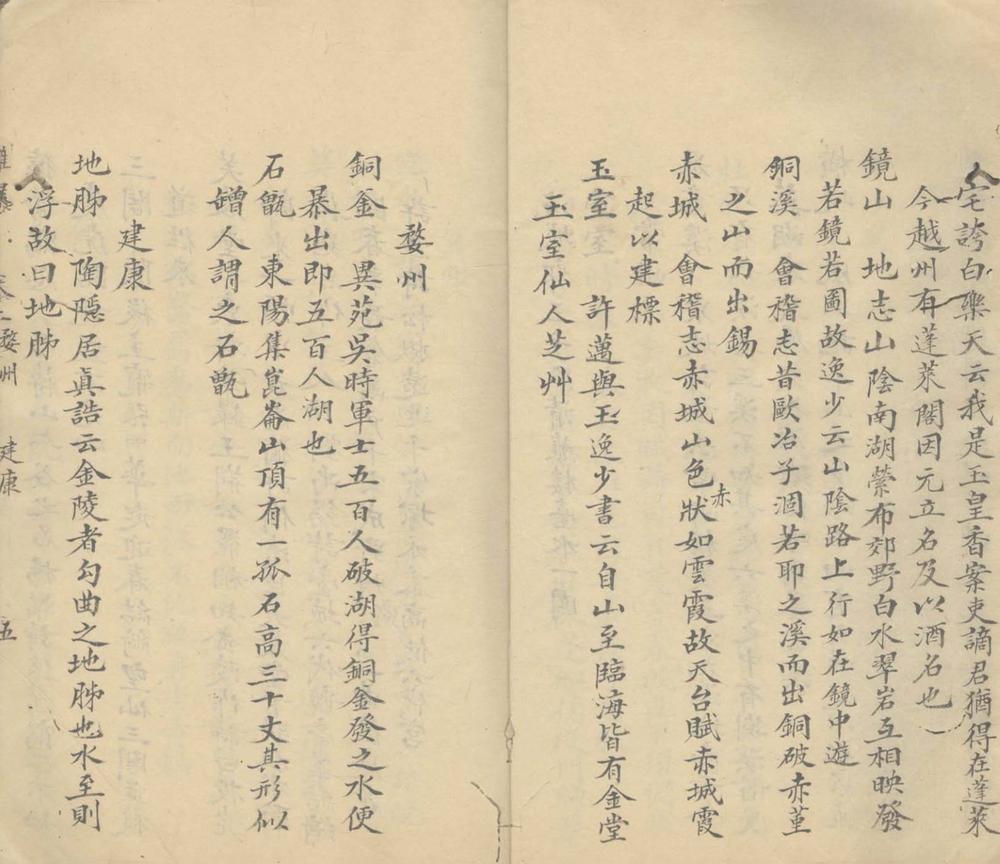 宅誇白樂天云我是玉皇香案吏謫君猶得在蓬萊
今越州有蓬萊閣因元立名及以酒名也
鏡山 地志山陰南湖縈布郊野白水翠岩互相映發
若鏡若圖故逸少云山陰路上行如在鏡中遊
銅溪 會稽志昔歐冶子涸若耶之溪而出銅破赤堇
之山而出錫
赤城 會稽志赤城山色赤狀如雲霞故天台賦赤城霞
起以建標
玉室 許邁與王逸少書云自山至臨海皆有金堂
玉室仙人芝艸
婺州
銅釜 異苑吳時軍士五百人破湖得銅釜發之水便
暴出即五百人湖也
石甑 東陽集崑崙山頂有一孤石高三十丈其形似
甑人謂之石甑
建康
地胏 陶隱居真誥云金陵者勾曲之地胏也水至則
浮故曰地胏
婺州 建康 五